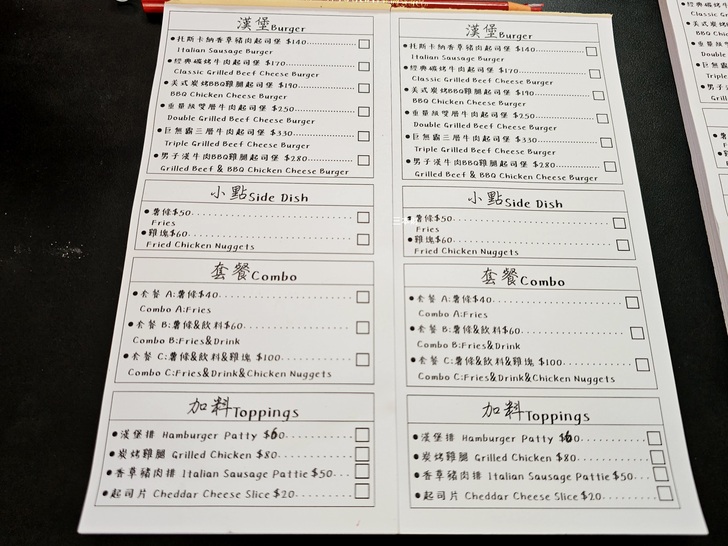 漢堡Burger
●托斯卡納香草豬肉起司堡 $140
Italian Sausage Burger
●經典碳烤牛肉起司堡 $170
Classic Grilled Beef Cheese Burger
●美式炭烤BBQ雞腿起司堡 $190
BBQ Chicken Cheese Burger
●重量級雙層牛肉起司堡 $250
Double Grilled Beef Cheese Burger
●巨無霸三層牛肉起司堡 $330
Triple Grilled Beef Cheese Burger
●男子漢牛肉BBQ雞腿起司堡 $280
Grilled Beef & BBQ Chicken Cheese Burger
小點Side Dish
●薯條$50
Fries
●雞塊$60
Fried Chicken Nuggets
套餐Combo
●套餐 A:薯條$40
Combo A:Fries
●套餐 B:薯條&飲料$60
Combo B:Fries&Drink
●套餐 C:薯條&飲料&雞塊 $100
Combo C:Fries&Drink&Chicken Nuggets
加料Toppings
●漢堡排 Hamburger Patty $60
●炭烤雞腿 Grilled Chicken $80
●香草豬肉排 Italian Sausage Pattie $50
●起司片 Cheddar Cheese Slice $20
漢堡Burger
●托斯卡納香草豬肉起司堡 $140
Italian Sausage Burger
●經典碳烤牛肉起司堡 $170
Classic Grilled Beef Cheese Burger
●美式炭烤BBQ雞腿起司堡 $190
BBQ Chicken Cheese Burger
●重量級雙層牛肉起司堡 $250
Double Grilled Beef Cheese Burger
●巨無霸三層牛肉起司堡 $330
Triple Grilled Beef Cheese Burger
●男子漢牛肉BBQ雞腿起司堡 $280
Grilled Beef & BBQ Chicken Cheese Burger
小點Side Dish
●薯條$50
Fries
●雞塊$60
Fried Chicken Nuggets
套餐Combo
●套餐 A:薯條$40
Combo A:Fries
●套餐 B:薯條&飲料$60
Combo B:Fries&Drink
●套餐 C:薯條&飲料&雞塊 $100
Combo C:Fries&Drink&Chicken Nuggets
加料Toppings
●漢堡排 Hamburger Patty $60
●炭烤雞腿 Grilled Chicken $80
●香草豬肉排 Italian Sausage Pattie $50
●起司片 Cheddar Cheese Slice $20